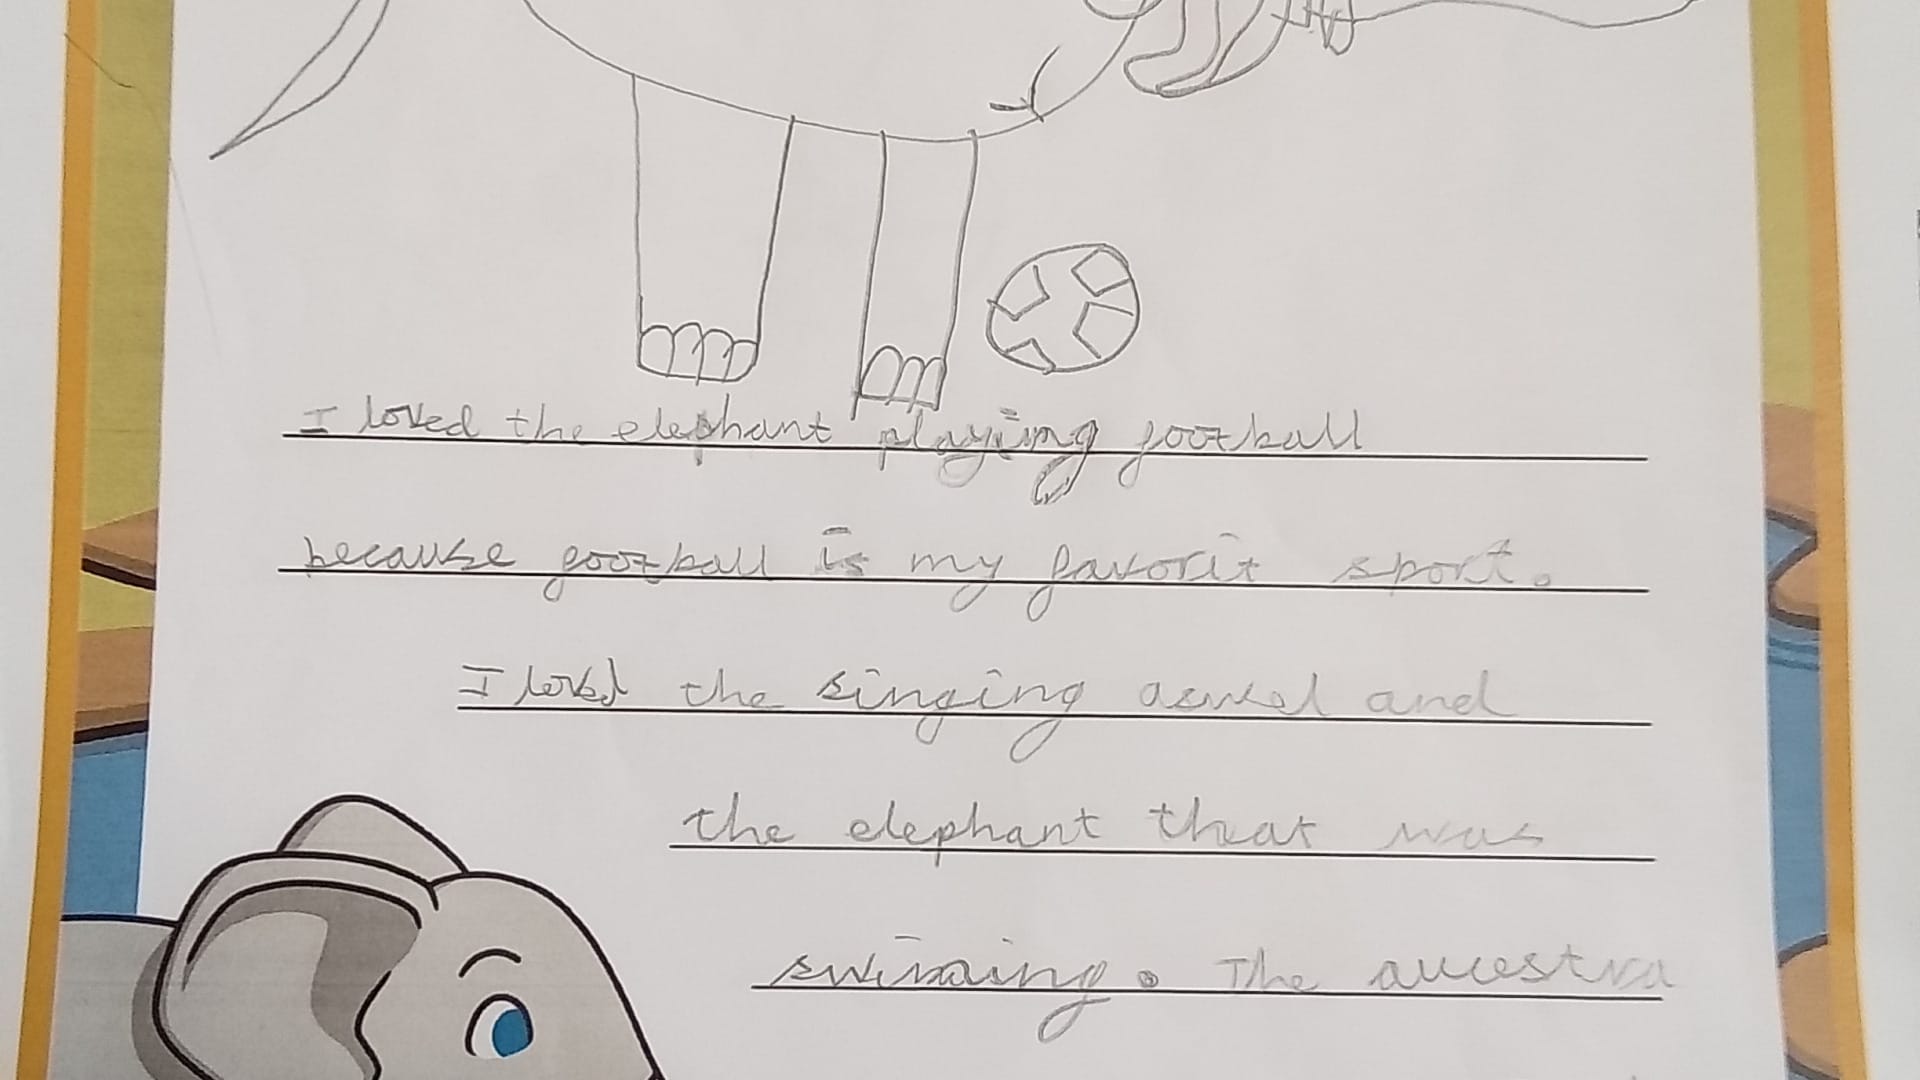 I loved the elephant playing football
because football is my favorit sport.
I loved the singing and
the elephant that was
swiming. The